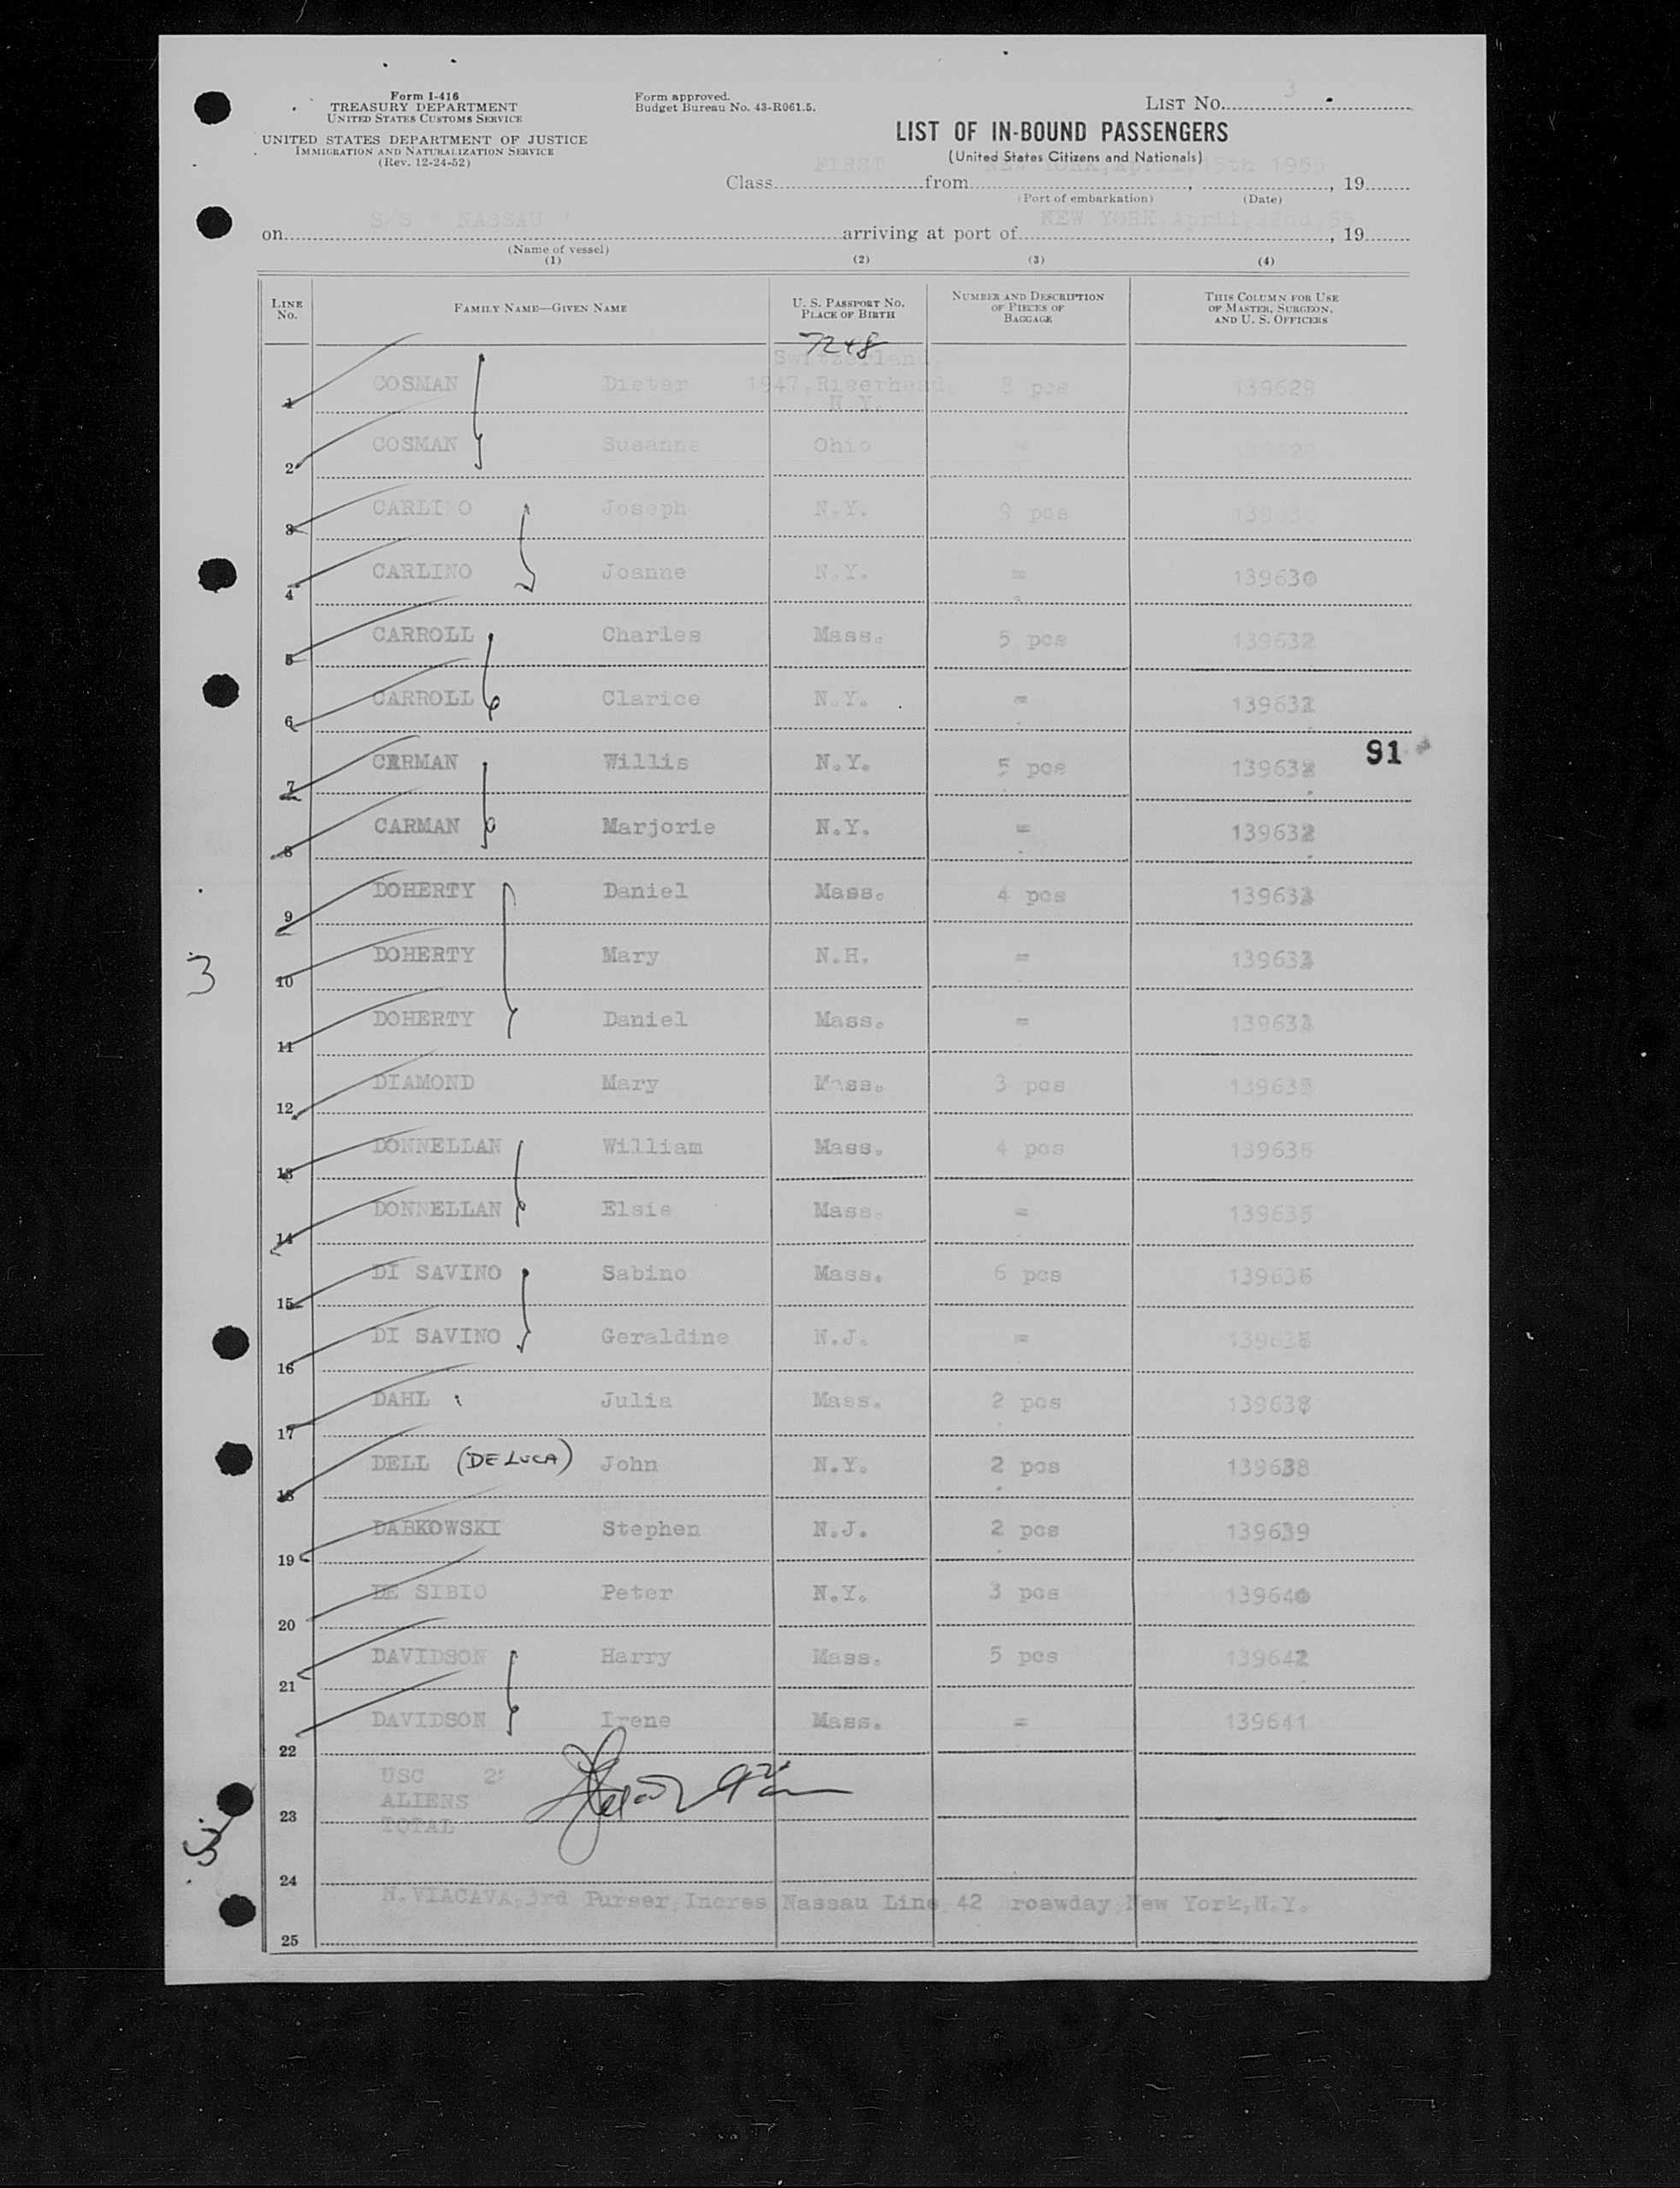 Form I-416
TREASURY DEPARTMENT
UNITED STATES CUSTOMS SERVICE
UNITED STATES DEPARTMENT OF JUSTICE
IMMIGRATION AND NATURALIZATION SERVICE
(Rev. 12-24-52)
Form approved.
Budget Bureau No. 43-R061.5.
LIST NO. 3
LIST OF IN-BOUND PASSENGERS
(United States Citizens and Nationals)
Class FIRST from NEW YORK, April, 15th 1955, 19
(Port of embarkation) (Date)
on S/S " NASSAU " arriving at port of NEW YORK April, 22nd, 55, 19
(Name of vessel)
(1) (2) (3) (4)
LINE NO. FAMILY NAME—GIVEN NAME U. S. PASSPORT NO. PLACE OF BIRTH NUMBER AND DESCRIPTION OF PIECES OF BAGGAGE THIS COLUMN FOR USE OF MASTER, SURGEON, AND U. S. OFFICERS
7248
Switzerland.
1 COSMAN Dieter 1947, Riserhead, 8 pcs 139629
N.Y.
2 COSMAN Susanne Ohio =
3 CARLINO Joseph N.Y. 9 pcs
4 CARLINO Joanne N.Y. = 139630
5 CARROLL Charles Mass. 5 pcs 139632
6 CARROLL Clarice N.Y. =
91
7 CARMAN Willis N.Y. 5 pcs
8 CARMAN Marjorie N.Y. = 139632
9 DOHERTY Daniel Mass. 4 pcs
10 DOHERTY Mary N.H. =
3
11 DOHERTY Daniel Mass. =
12 DIAMOND Mary Mass. 3 pcs
13 DONNELLAN William Mass. 4 pcs
14 DONNELLAN Elsie Mass. = 139635
15 DI SAVINO Sabino Mass. 6 pcs 139636
16 DI SAVINO Geraldine N.J. =
17 DAHL Julia Mass. 2 pcs
18 DELL (DE LUCA) John N.Y. 2 pcs 139638
19 DABKOWSKI Stephen N.J. 2 pcs 139639
20 DE SIBIO Peter N.Y. 3 pcs 139640
21 DAVIDSON Harry Mass. 5 pcs
22 DAVIDSON Irene Mass. = 139641
USC
ALIENS
23 TOTAL
24
N. VIACAVA, 3rd Purser, Incres Nassau Line 42 roawday New York, N.Y.
25